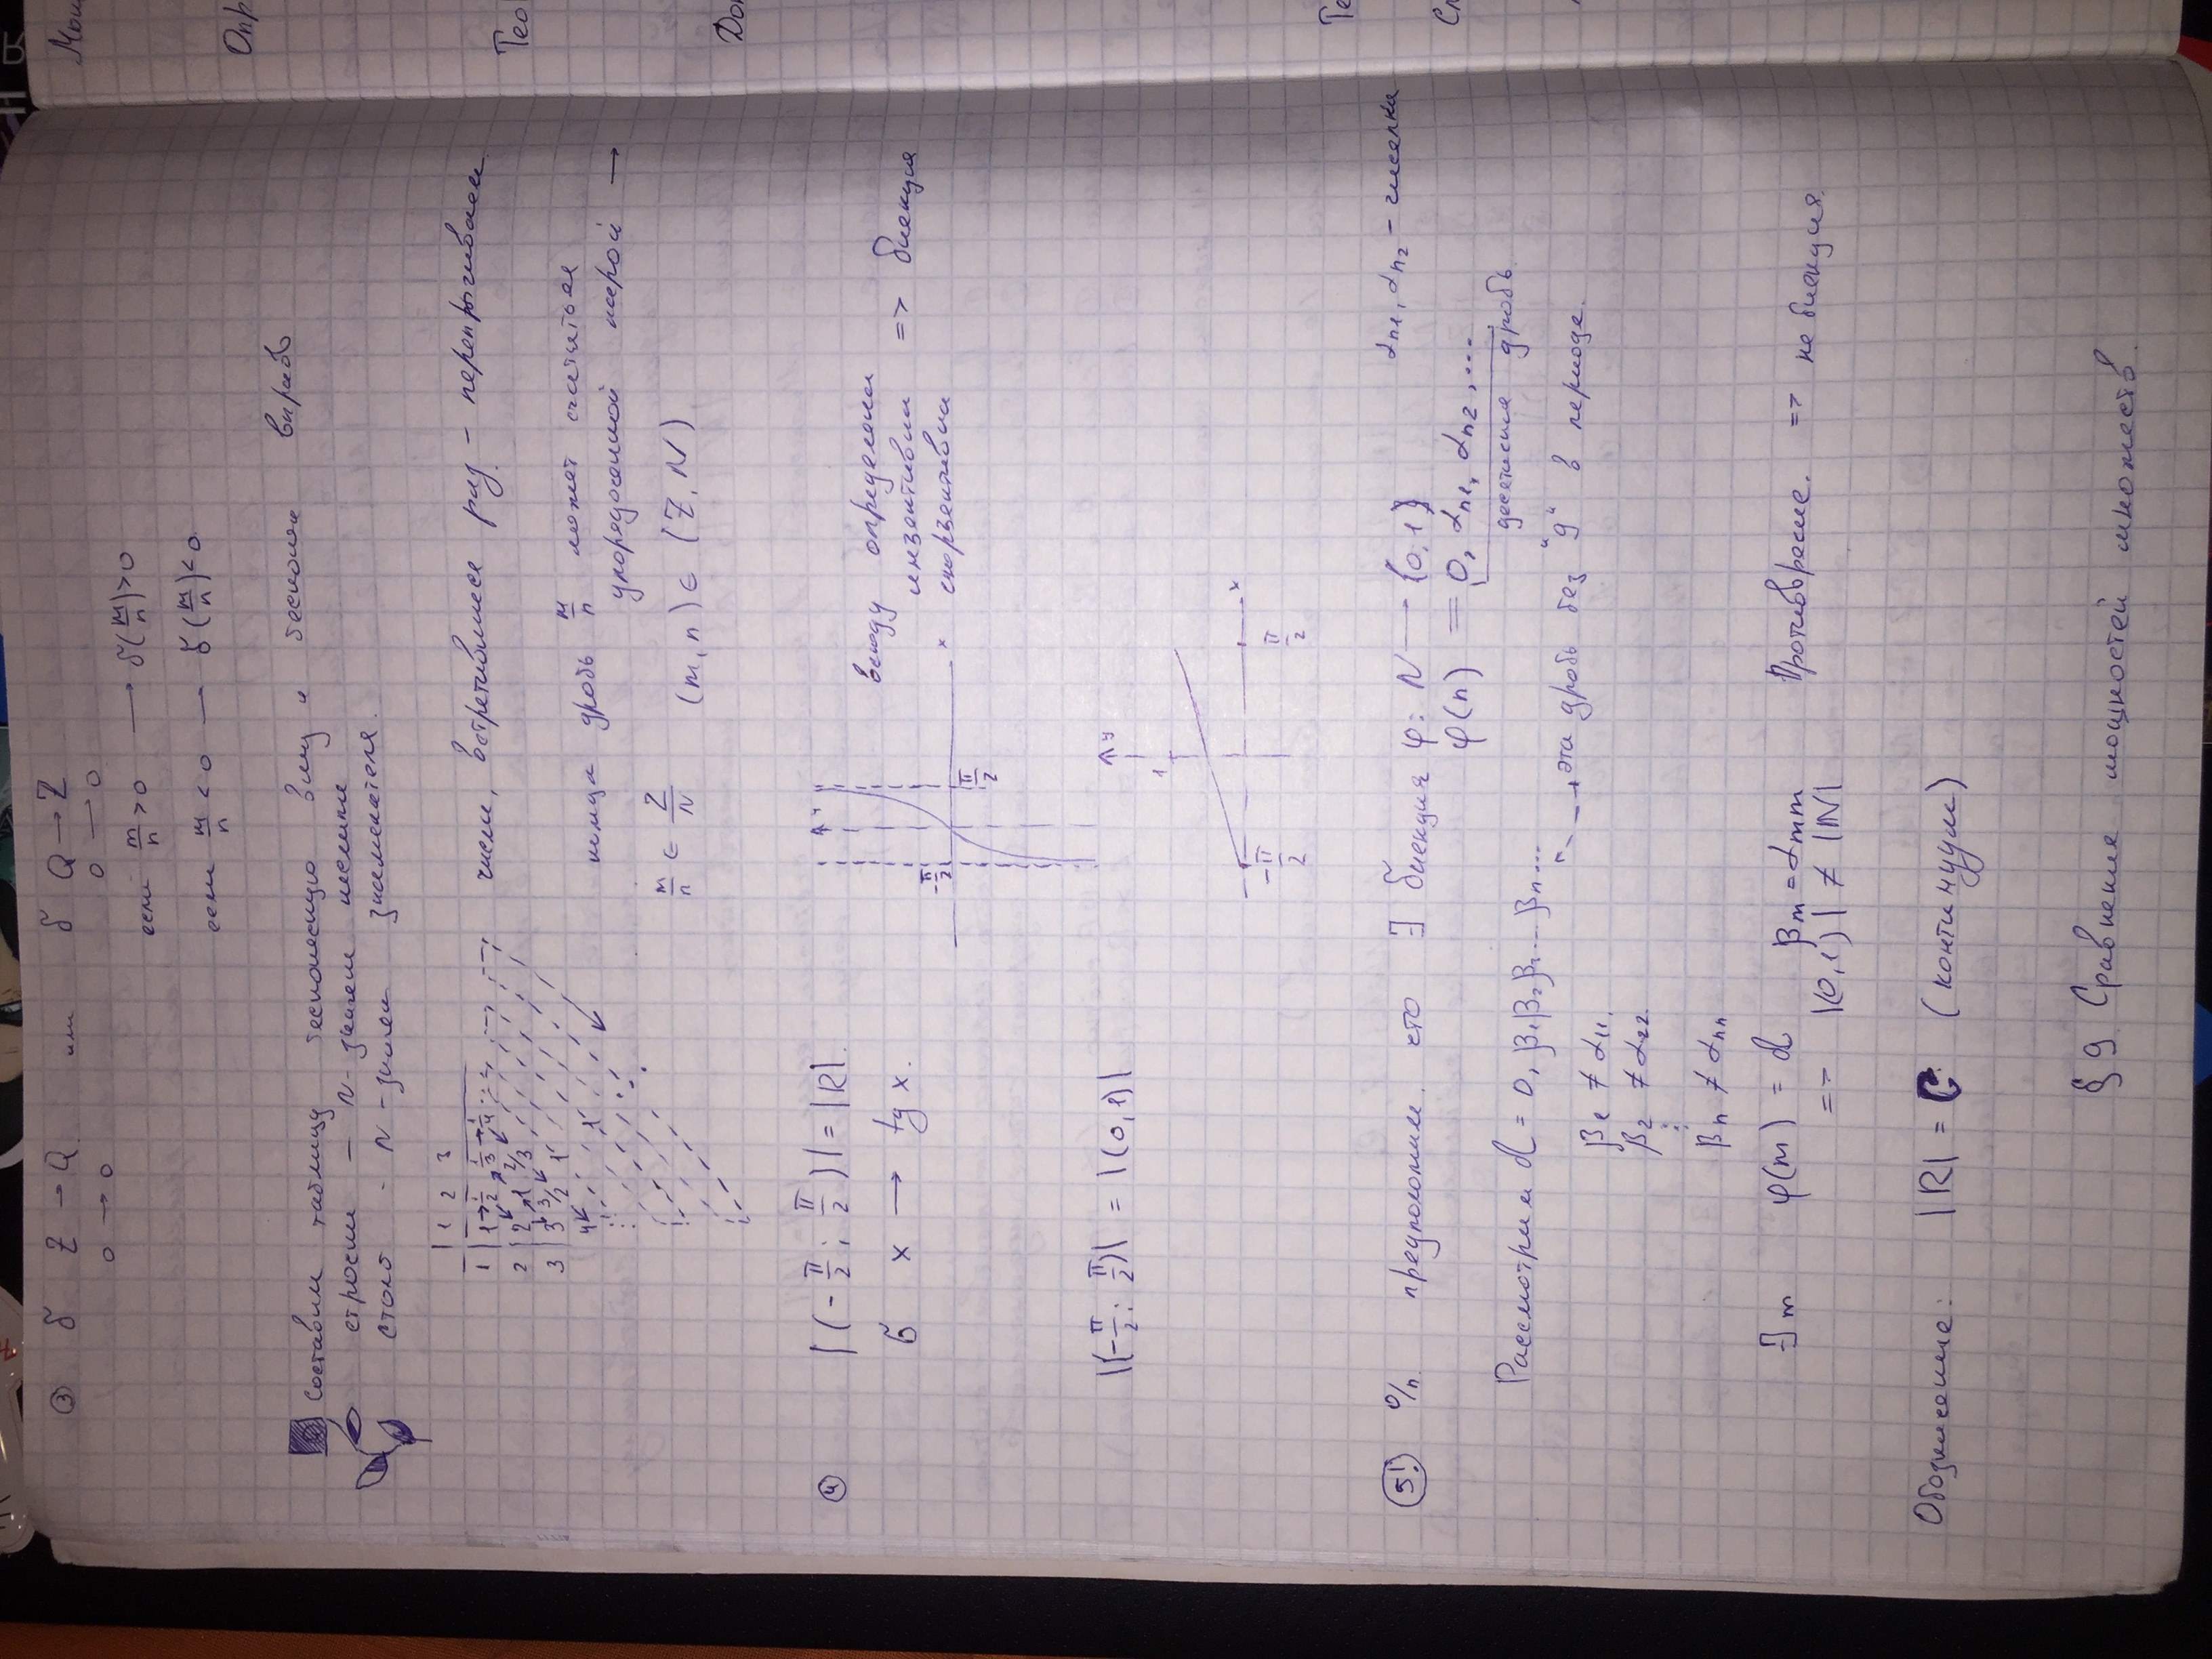 ③ б Z → Q или б Q → Z
0 → 0 0 → 0
если m/n > 0 → б(m/n) > 0
если m/n < 0 → б(m/n) < 0
Составим таблицу бесконечную вниз и бесконечн вправо
строки — N - значен числите
столб - N - значен знаменателя.
1 2 3
1 1 → 1/2 1/3 → 1/4 ...
2 2 1 2/3
3 3 3/2 1
4 1
числа, встретившиеся раз - перепрыгиваем
дробь m/n может считаться
упорядоченной парой →
m/n ∈ Z/N (m, n) ∈ (Z, N)
④ |(-π/2; π/2)| = |R|.
б x → tg x.
y
-π/2 x
π/2
всюду определена
инъективна => биекция
сюръективна
|(-π/2; π/2)| = |(0,1)|
y
1
x
-π/2 π/2
⑤! о/п предположим что ∃ биекция φ: N → (0,1) αn1, αn2 - циферки
φ(n) = 0, αn1, αn2, ...
десятичная дробь
Рассмотрим d = 0, β1β2β3...βn...
эта дробь без "9" в периоде.
β1 ≠ α11.
β2 ≠ α22.
⋮
βn ≠ αnn
∃ m φ(m) = d βm = αmm Противоречие. => не биекция.
=> |(0,1)| ≠ |N|
Обозначение: |R| = C (континуум)
§ 9 Сравнение мощностей множеств.
Опр
Тео
Док
Те
Сл